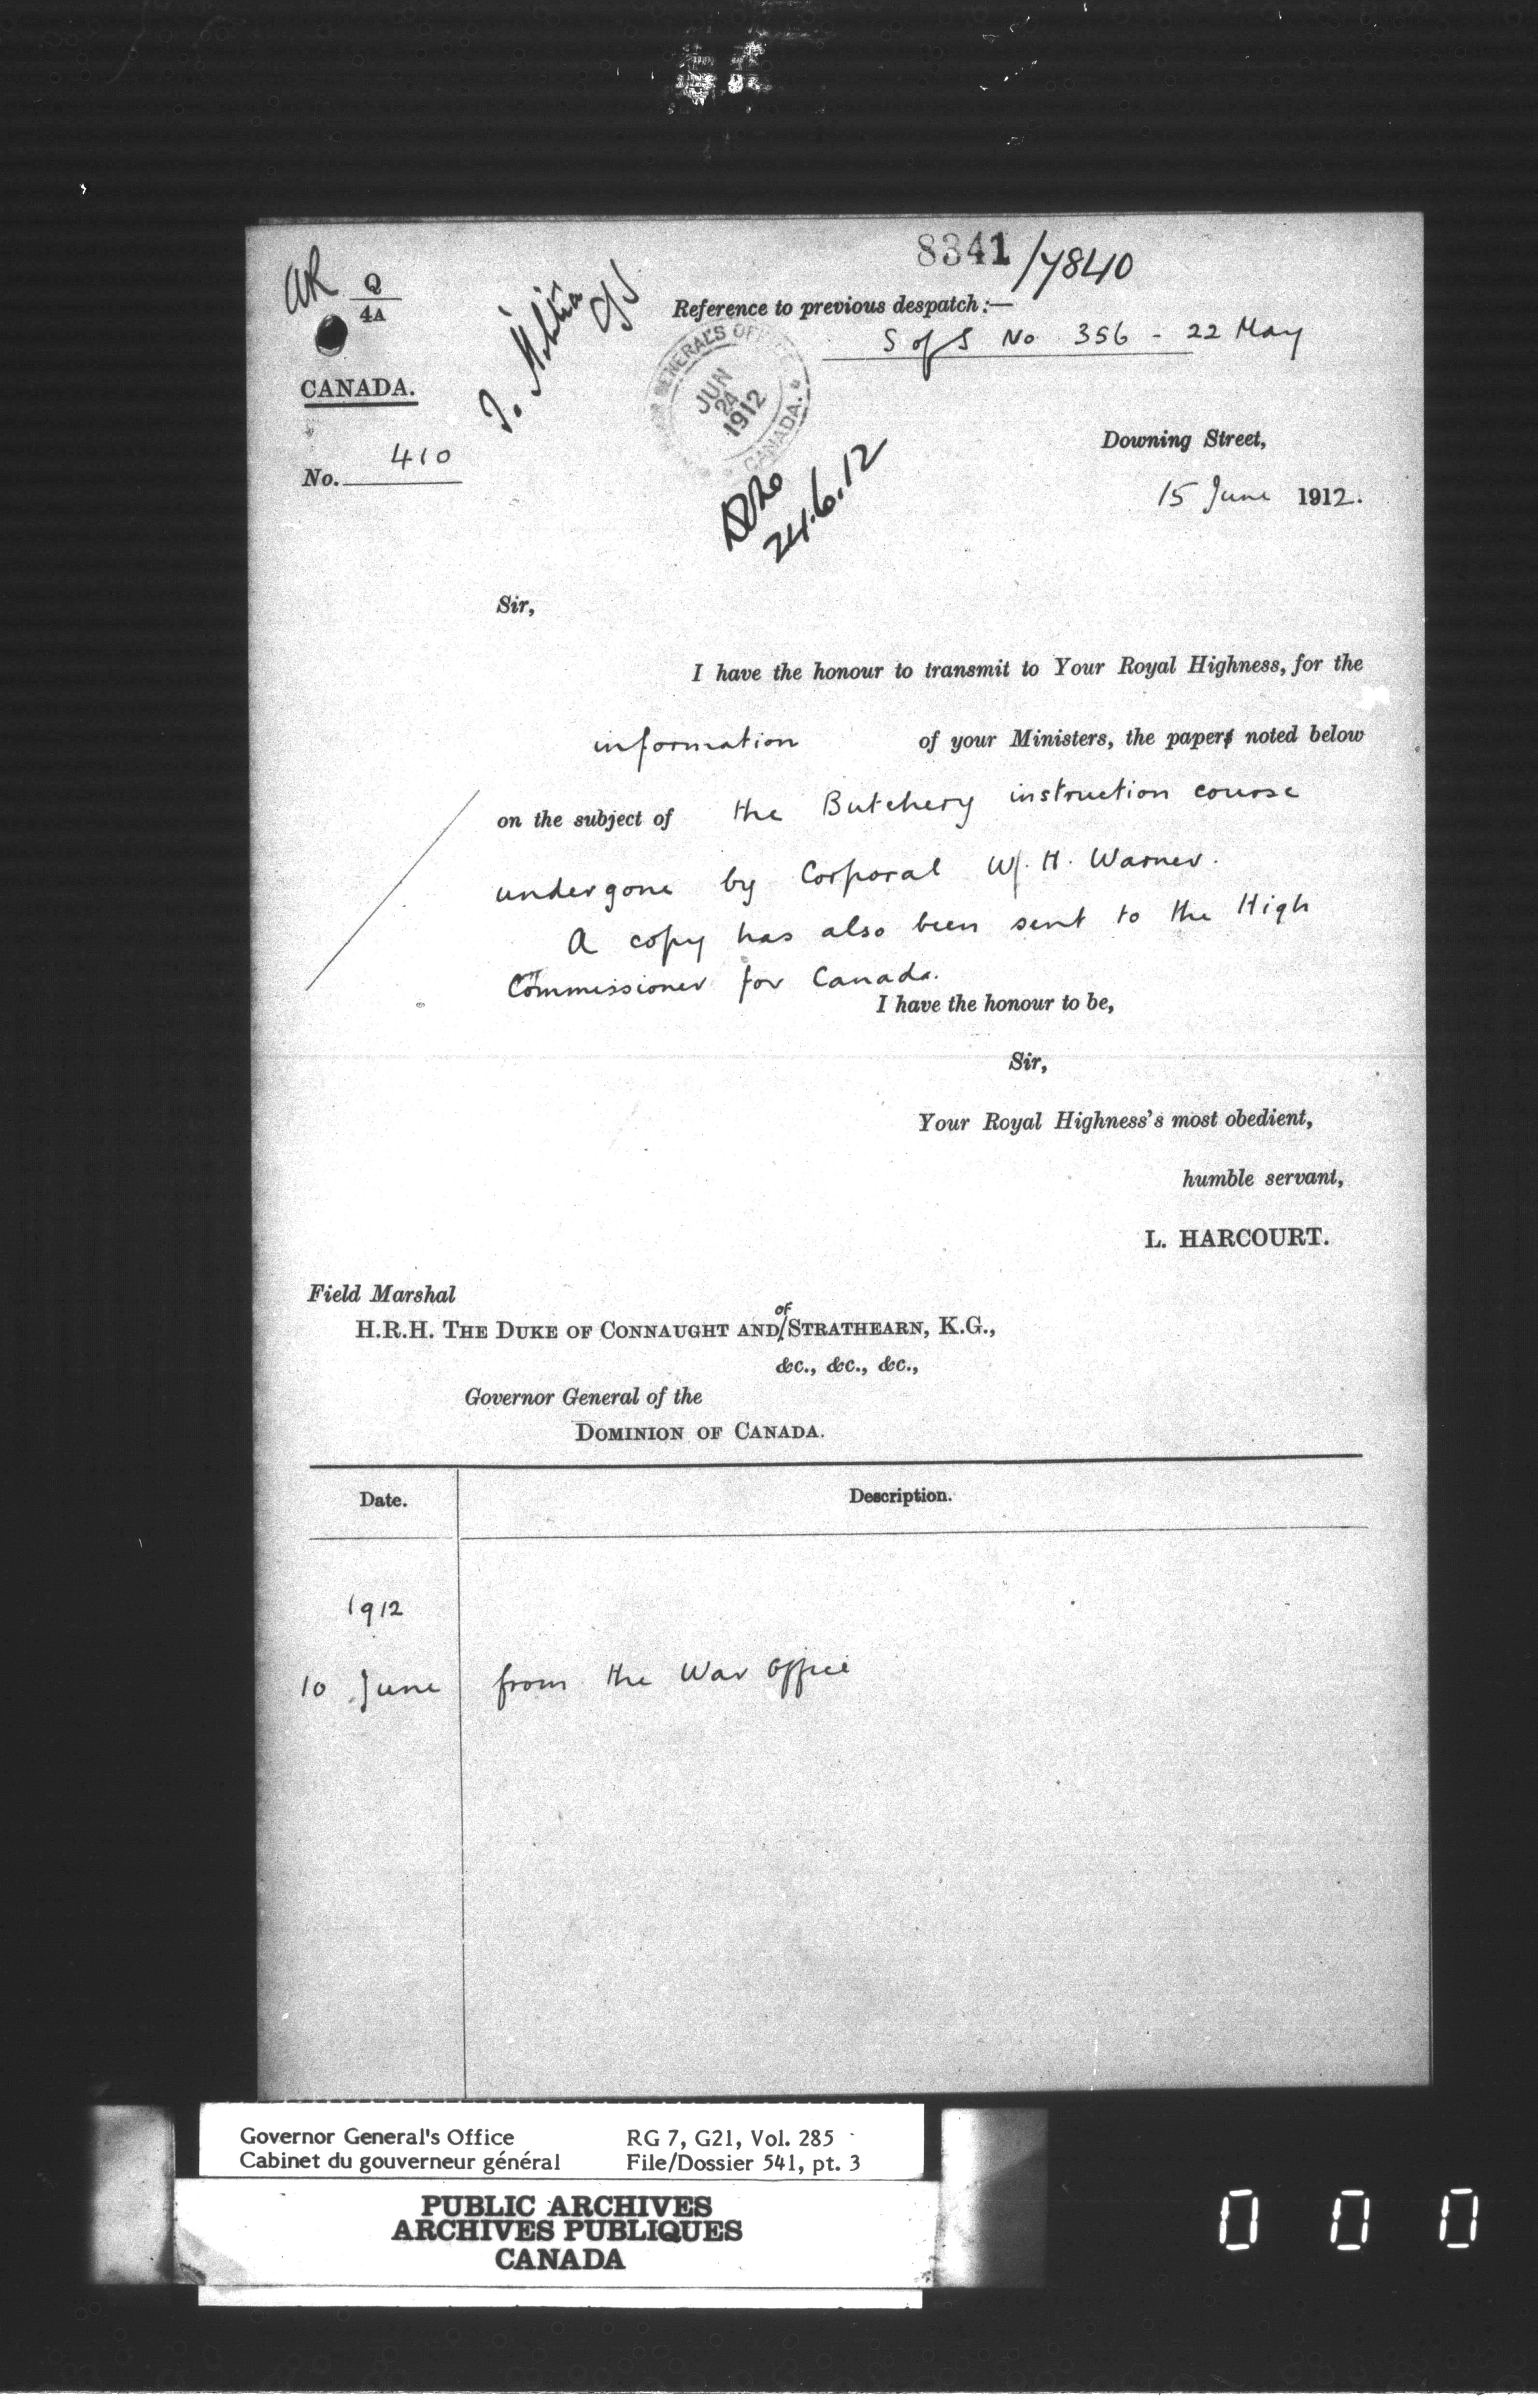 8341/7840
AR
Q
4A
To Militia
Reference to previous despatch:—
S of S No 356 - 22 May
CANADA.
GENERAL'S OFFICE
JUN
24
1912
CANADA.
No. 410
Downing Street,
24.6.12
15 June 1912.
Sir,
I have the honour to transmit to Your Royal Highness, for the
information of your Ministers, the paper noted below
on the subject of the Butchery instruction course
undergone by Corporal W. H. Warner.
A copy has also been sent to the High
Commissioner for Canada.
I have the honour to be,
Sir,
Your Royal Highness's most obedient,
humble servant,
L. HARCOURT.
Field Marshal
H.R.H. THE DUKE OF CONNAUGHT AND of STRATHEARN, K.G.,
&c., &c., &c.,
Governor General of the
DOMINION OF CANADA.
Date. Description.
1912
10 June from the War Office
Governor General's Office RG 7, G21, Vol. 285
Cabinet du gouverneur général File/Dossier 541, pt. 3
PUBLIC ARCHIVES
ARCHIVES PUBLIQUES
CANADA
0 0 0